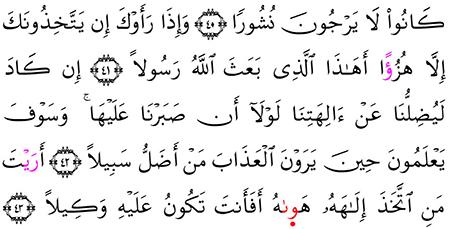 كَانُوا۟ لَا يَرْجُونَ نُشُورًا ﴿٤٠﴾ وَإِذَا رَأَوْكَ إِن يَتَّخِذُونَكَ
إِلَّا هُزُؤًا أَهَـٰذَا ٱلَّذِى بَعَثَ ٱللَّهُ رَسُولاً ﴿٤١﴾ إِن كَادَ
لَيُضِلُّنَا عَنْ ءَالِهَتِنَا لَوْلَآ أَن صَبَرْنَا عَلَيْهَا ۚ وَسَوْفَ
يَعْلَمُونَ حِينَ يَرَوْنَ ٱلْعَذَابَ مَنْ أَضَلُّ سَبِيلاً ﴿٤٢﴾ أَرَيْتَ
مَنِ ٱتَّخَذَ إِلَـٰهَهُۥ هَوىٰهُ أَفَأَنتَ تَكُونُ عَلَيْهِ وَكِيلاً ﴿٤٣﴾